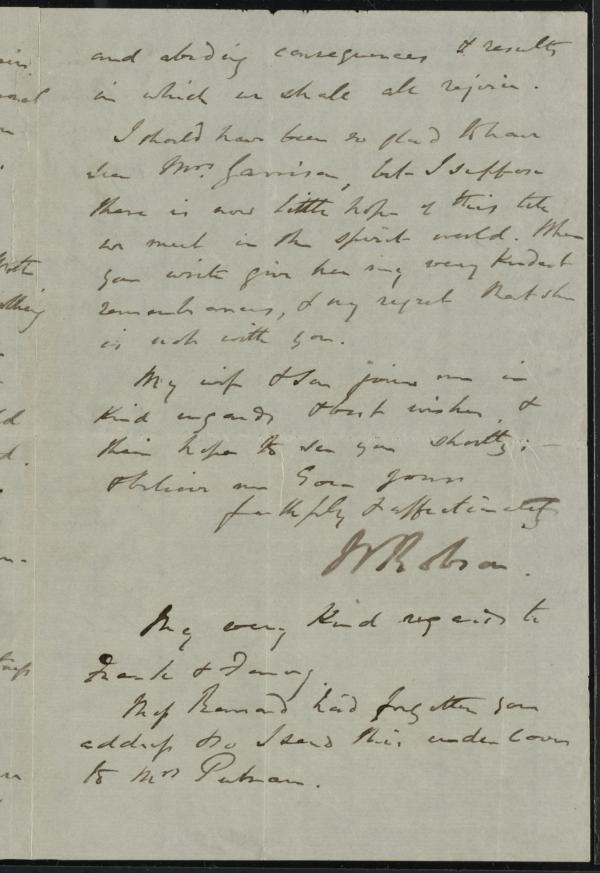 and abiding consequences & results
in which we shall all rejoice.
I should have been so glad to have
seen Mrs. Garrison, but I suppose
there is now little hope of this till
we meet in the spirit world. When
you write give her my very kindest
remembrances, & my regret that she
is not with you.
My wife & son join me in
kind regards & best wishes, &
their hope to see you shortly; –
& believe me Ever yours
faithfully & affectionately
W Robson.
My very kind regards to
Frank & Fanny.
Miss had forgotten your
address & so I send this under cover
to Mrs Putnam.